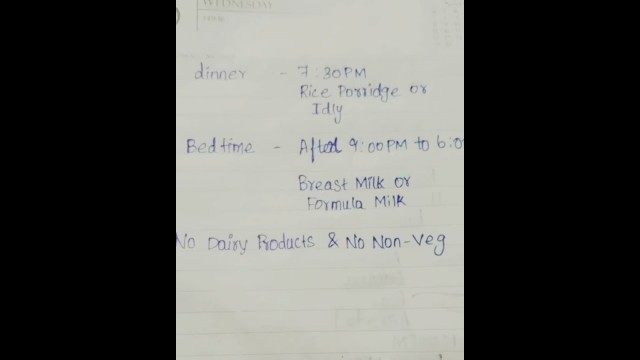 WEDNESDAY
dinner - 7:30PM
Rice Porridge or
Idly
Bedtime - After 9:00PM to 6:0
Breast Milk or
Formula Milk
No Dairy Products & No Non-Veg